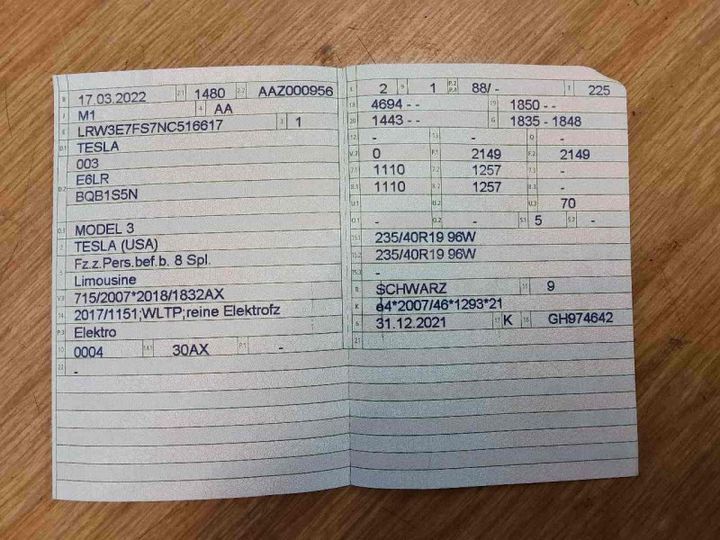 B 17.03.2022 2.1 1480 2.2 AAZ000956
J M1 4 AA
E LRW3E7FS7NC516617 3 1
D.1 TESLA
003
E6LR
D.2 BQB1S5N
D.3 MODEL 3
2 TESLA (USA)
Fz.z.Pers.bef.b. 8 Spl.
5 Limousine
V.9 715/2007*2018/1832AX
14 2017/1151;WLTP;reine Elektrofz
P.3 Elektro
10 0004 14.1 30AX P.1 -
22 -
L 2 9 1 P.2 P.4 88/ - T 225
18 4694 - - 19 1850 - -
20 1443 - - G 1835 - 1848
12 - 13 - Q -
V.7 0 F.1 2149 F.2 2149
7.1 1110 7.2 1257 7.3 -
8.1 1110 8.2 1257 8.3 -
U.1 U.2 U.3 70
O.1 - O.2 - S.1 5 S.2 -
15.1 235/40R19 96W
15.2 235/40R19 96W
15.3 -
R SCHWARZ 11 9
K e4*2007/46*1293*21
6 31.12.2021 17 K 16 GH974642
21